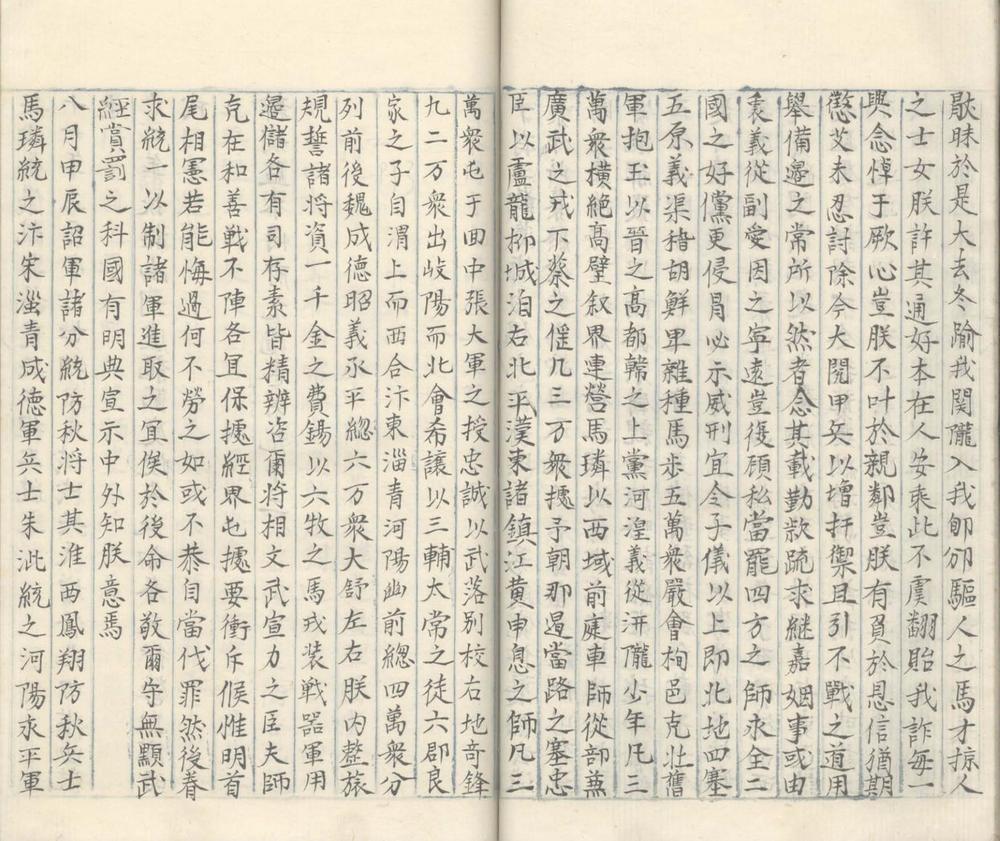 歇昧於是大去冬踰我関隴入我郇邠驅人之馬才掠人
之士女朕許其通好本在人安乘此不虞翻貽我詐每一
興念悼于厥心豈朕不叶於親鄰豈朕有負於恩信猶期
懲艾未忍討除今大閱甲兵以增扞禦且引不戰之道用
舉備邊之常所以然者念其載勤欵䟽求継嘉姻事或由
衷義從副愛因之寧遠豈復顧私當罷四方之師永全二
國之好儻更侵冐必示威刑宜令子儀以上即北地四塞
五原義渠稽胡鮮卑雜種馬歩五萬衆嚴會栒邑克壯舊
軍抱玉以晉之高都韓之上黨河湟義從汧隴少年凢三
萬衆橫絶髙壁叙界連營馬璘以西域前庭車師從部兼
廣武之戍下蔡之傜凢三万衆㩀予朝那遏當路之塞忠
臣以盧龍柳城洎右北平漢東諸鎮江黄申息之師凢三
萬衆屯于囬中張大軍之授忠誠以武落别校右地竒鋒
九二万衆出岐陽而北會希讓以三輔太常之徒六郡良
家之子自渭上而西合汴東淄青河陽幽前緫四萬衆分
列前後魏成德昭義永平緫六万衆大舒左右朕内整旅
規誓諸将資一千金之費錫以六牧之馬戎装戦器軍用
邉儲各有司存素皆精辨咨爾将相文武宣力之臣夫師
克在和善戦不陣各宜保㩀經界屯㩀要衝斥候惟明首
尾相憲若能悔過何不勞之如或不恭自當伐罪然後眷
求統一以制諸軍進取之宜俟於後命各敬爾守無黷武
經賞罰之科國有明典宣示中外知朕意焉
八月甲辰詔軍諸分統防秋将士其淮西鳳翔防秋兵士
馬璘統之汴宋淄青成徳軍兵士朱泚統之河陽永平軍